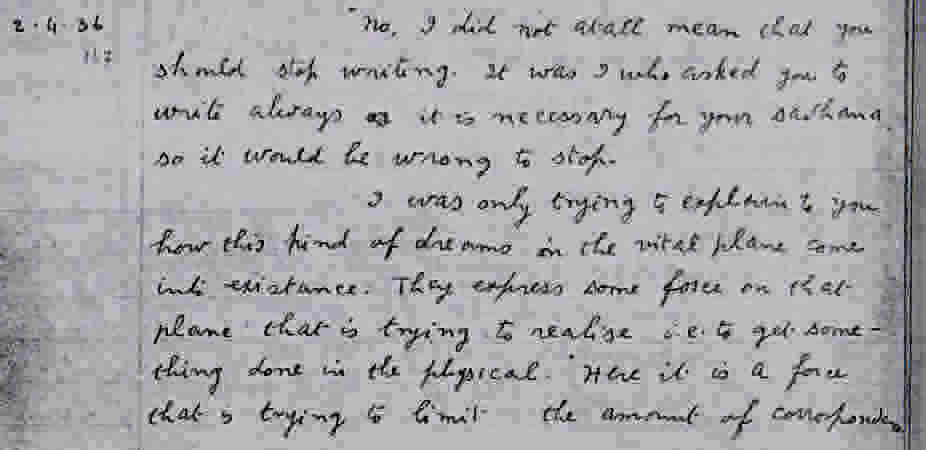 2.4.36
"No, I did not atall mean that you
should stop writing. It was I who asked you to
write always as it is necessary for your sadhana,
so it would be wrong to stop.
I was only trying to explain to you
how this kind of dreams in the vital plane come
into existance. They express some force on that
plane that is trying to realise i.e. to get some-
thing done in the physical. Here it is a force
that is trying to limit the amount of